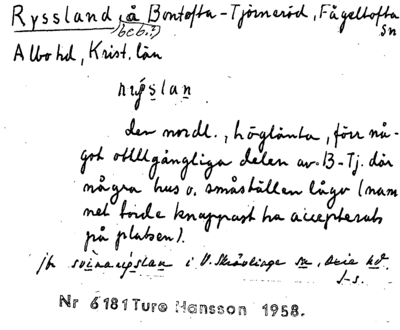 Ryssland, å Bontofta-Tjörneröd, Fågeltofta
(beb.?) sn
Albo hd, Krist. län
rýslan
den nordl., höglänta, förr nå-
got otillgängliga delen av B-Tj. där
några hus o. småställen lågo (nam
net torde knappast ha accepterats
på platsen).
jfr i V. Skrävlinge sn, Oxie hd.
Nr 6181 Ture Hansson 1958.